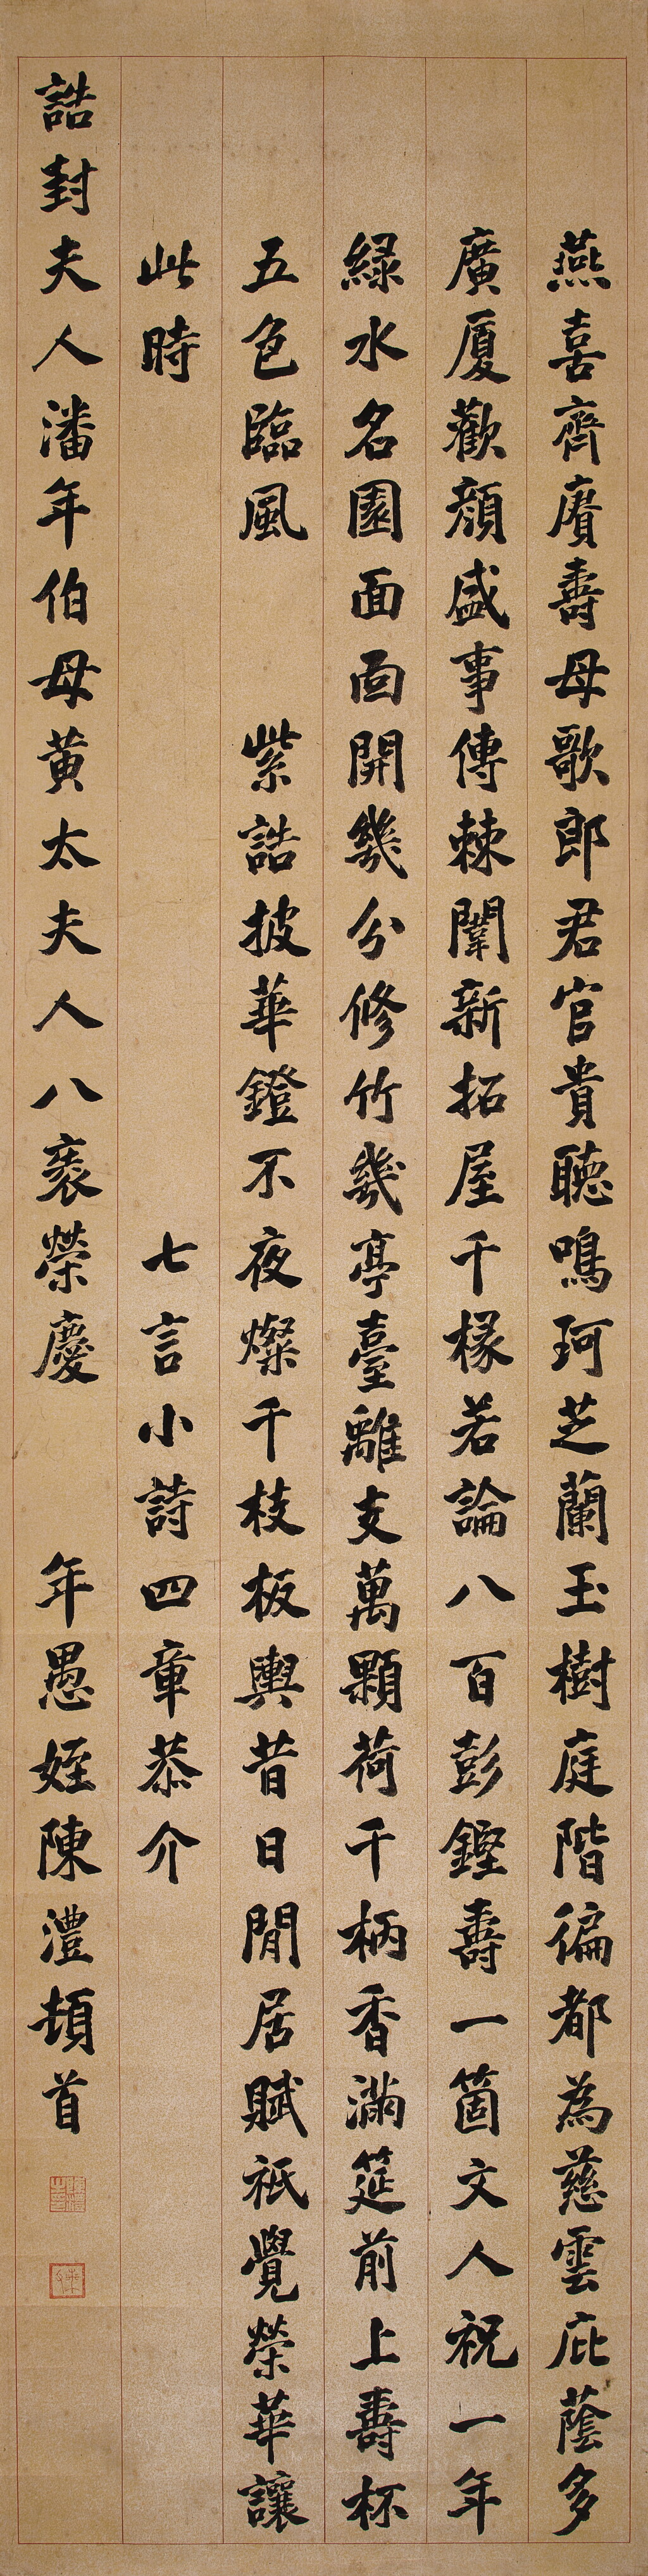 燕喜齊賡壽母歌郎君官貴聽鳴珂芝蘭玉樹庭階徧都為慈雲庇蔭多
廣廈歡顏盛事傳棘闈新拓屋千椽若論八百彭鏗壽一箇文人祝一年
綠水名園面面開幾分修竹幾亭臺離支萬顆荷千柄香滿筵前上壽杯
五色臨風 紫誥披華鐙不夜燦千枝板輿昔日閒居賦祇覺榮華讓
此時 七言小詩四章恭介
誥封夫人潘年伯母黃太夫人八袠榮慶 年愚姪陳澧頓首